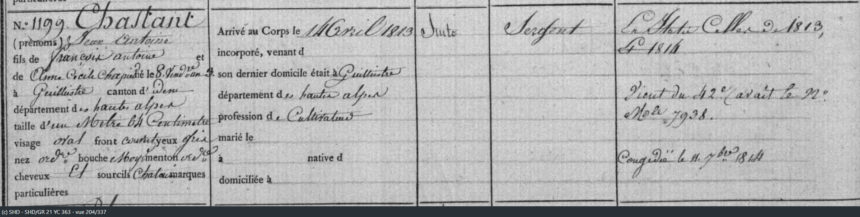 N.º 1199 Chastant
(prénoms) Jean Antoine
fils de françois antoine et
de Anne Cécile Chapin né le 8 Vend.re an 2
à Guillestre canton d'idem
département des hautes alpes
taille d'un Metre 64 Centimetre
visage oval front couvert yeux gris
nez ord.re bouche Moy menton ord.re
cheveux Et sourcils Chatain marques
particulières
Arrivé au Corps le 14 Avril 1813
incorporé, venant d
son dernier domicile était à Guillestre
département des hautes alpes
profession de Cultivateur
marié le
à native d
domiciliée à
Sergent
En Italie Celles de 1813,
Et 1814
Vient du 42e (avait le N.º
M.le 7938.
Congédié le 11 7bre 1814
(c) SHD - SHD/GR 21 YC 363 - vue 204/337